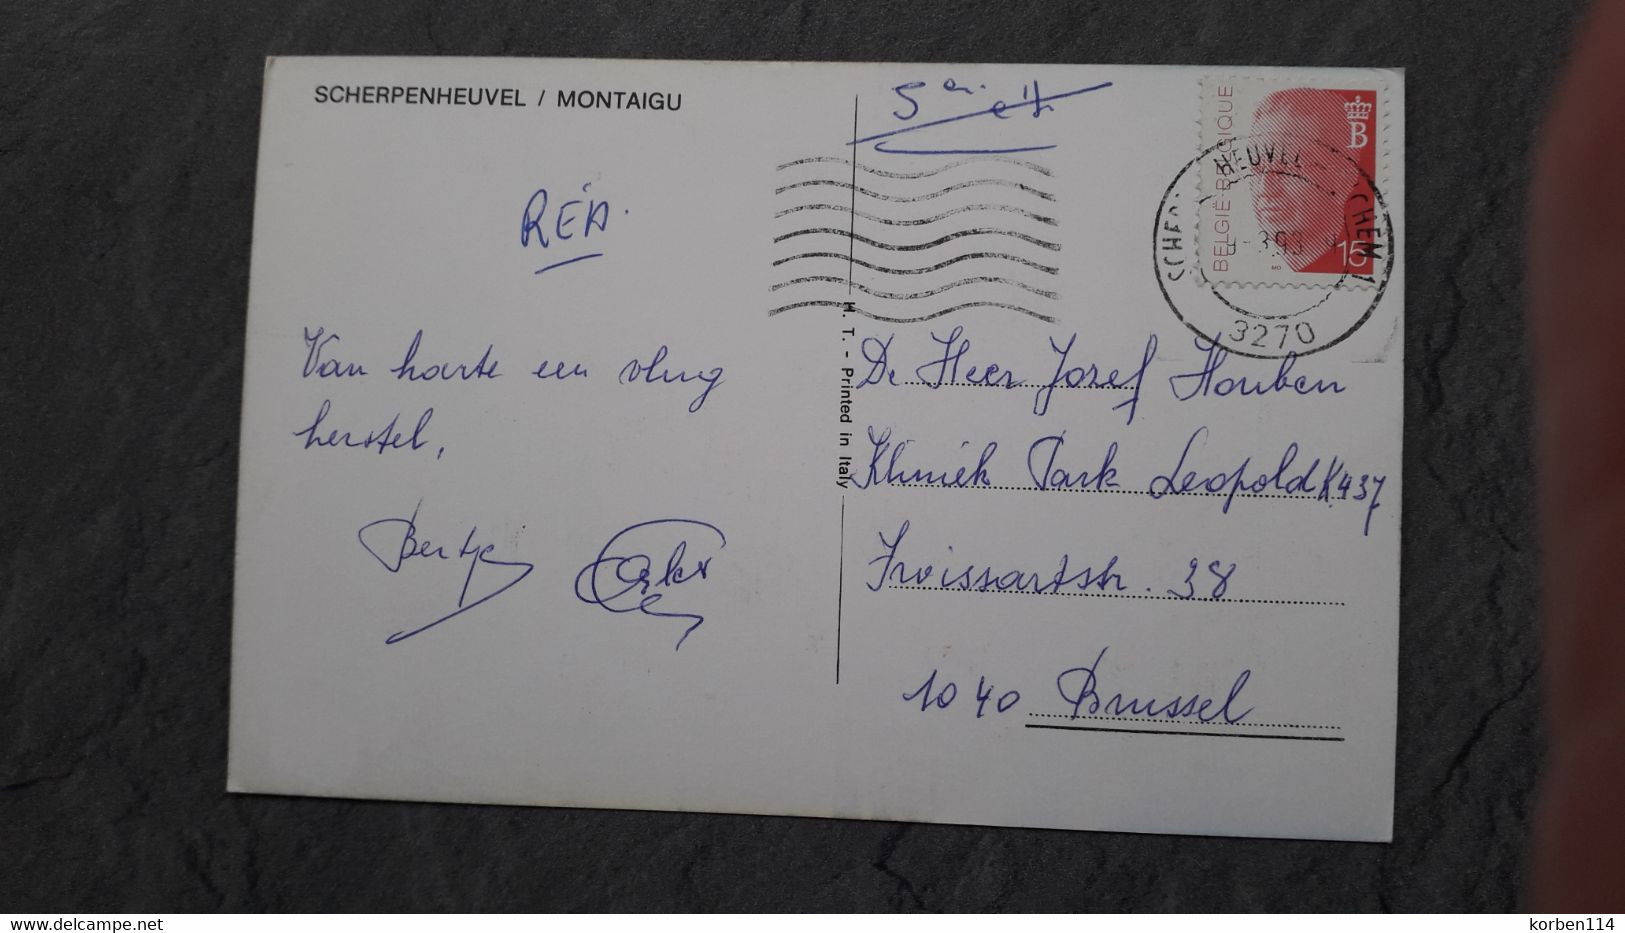 SCHERPENHEUVEL / MONTAIGU
RÉA.
Van harte een vlug
herstel,
Bertje
H. T. - Printed in Italy
BELGIË-BELGIQUE
B
15
3270
De Heer Jozef Houben
Kliniek Park Leopold K437
Froissartstr. 38
1040 Brussel
www.delcampe.net
korben114